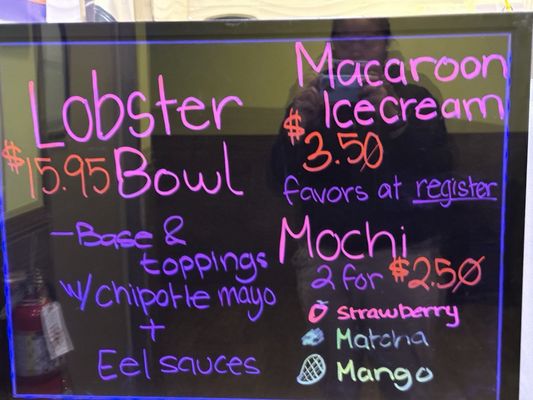 Lobster
$15.95 Bowl
- Base &
toppings
w/ chipotle mayo
+
Eel sauces
Macaroon
Icecream
$3.50
favors at register
Mochi
2 for $2.50
Strawberry
Matcha
Mango